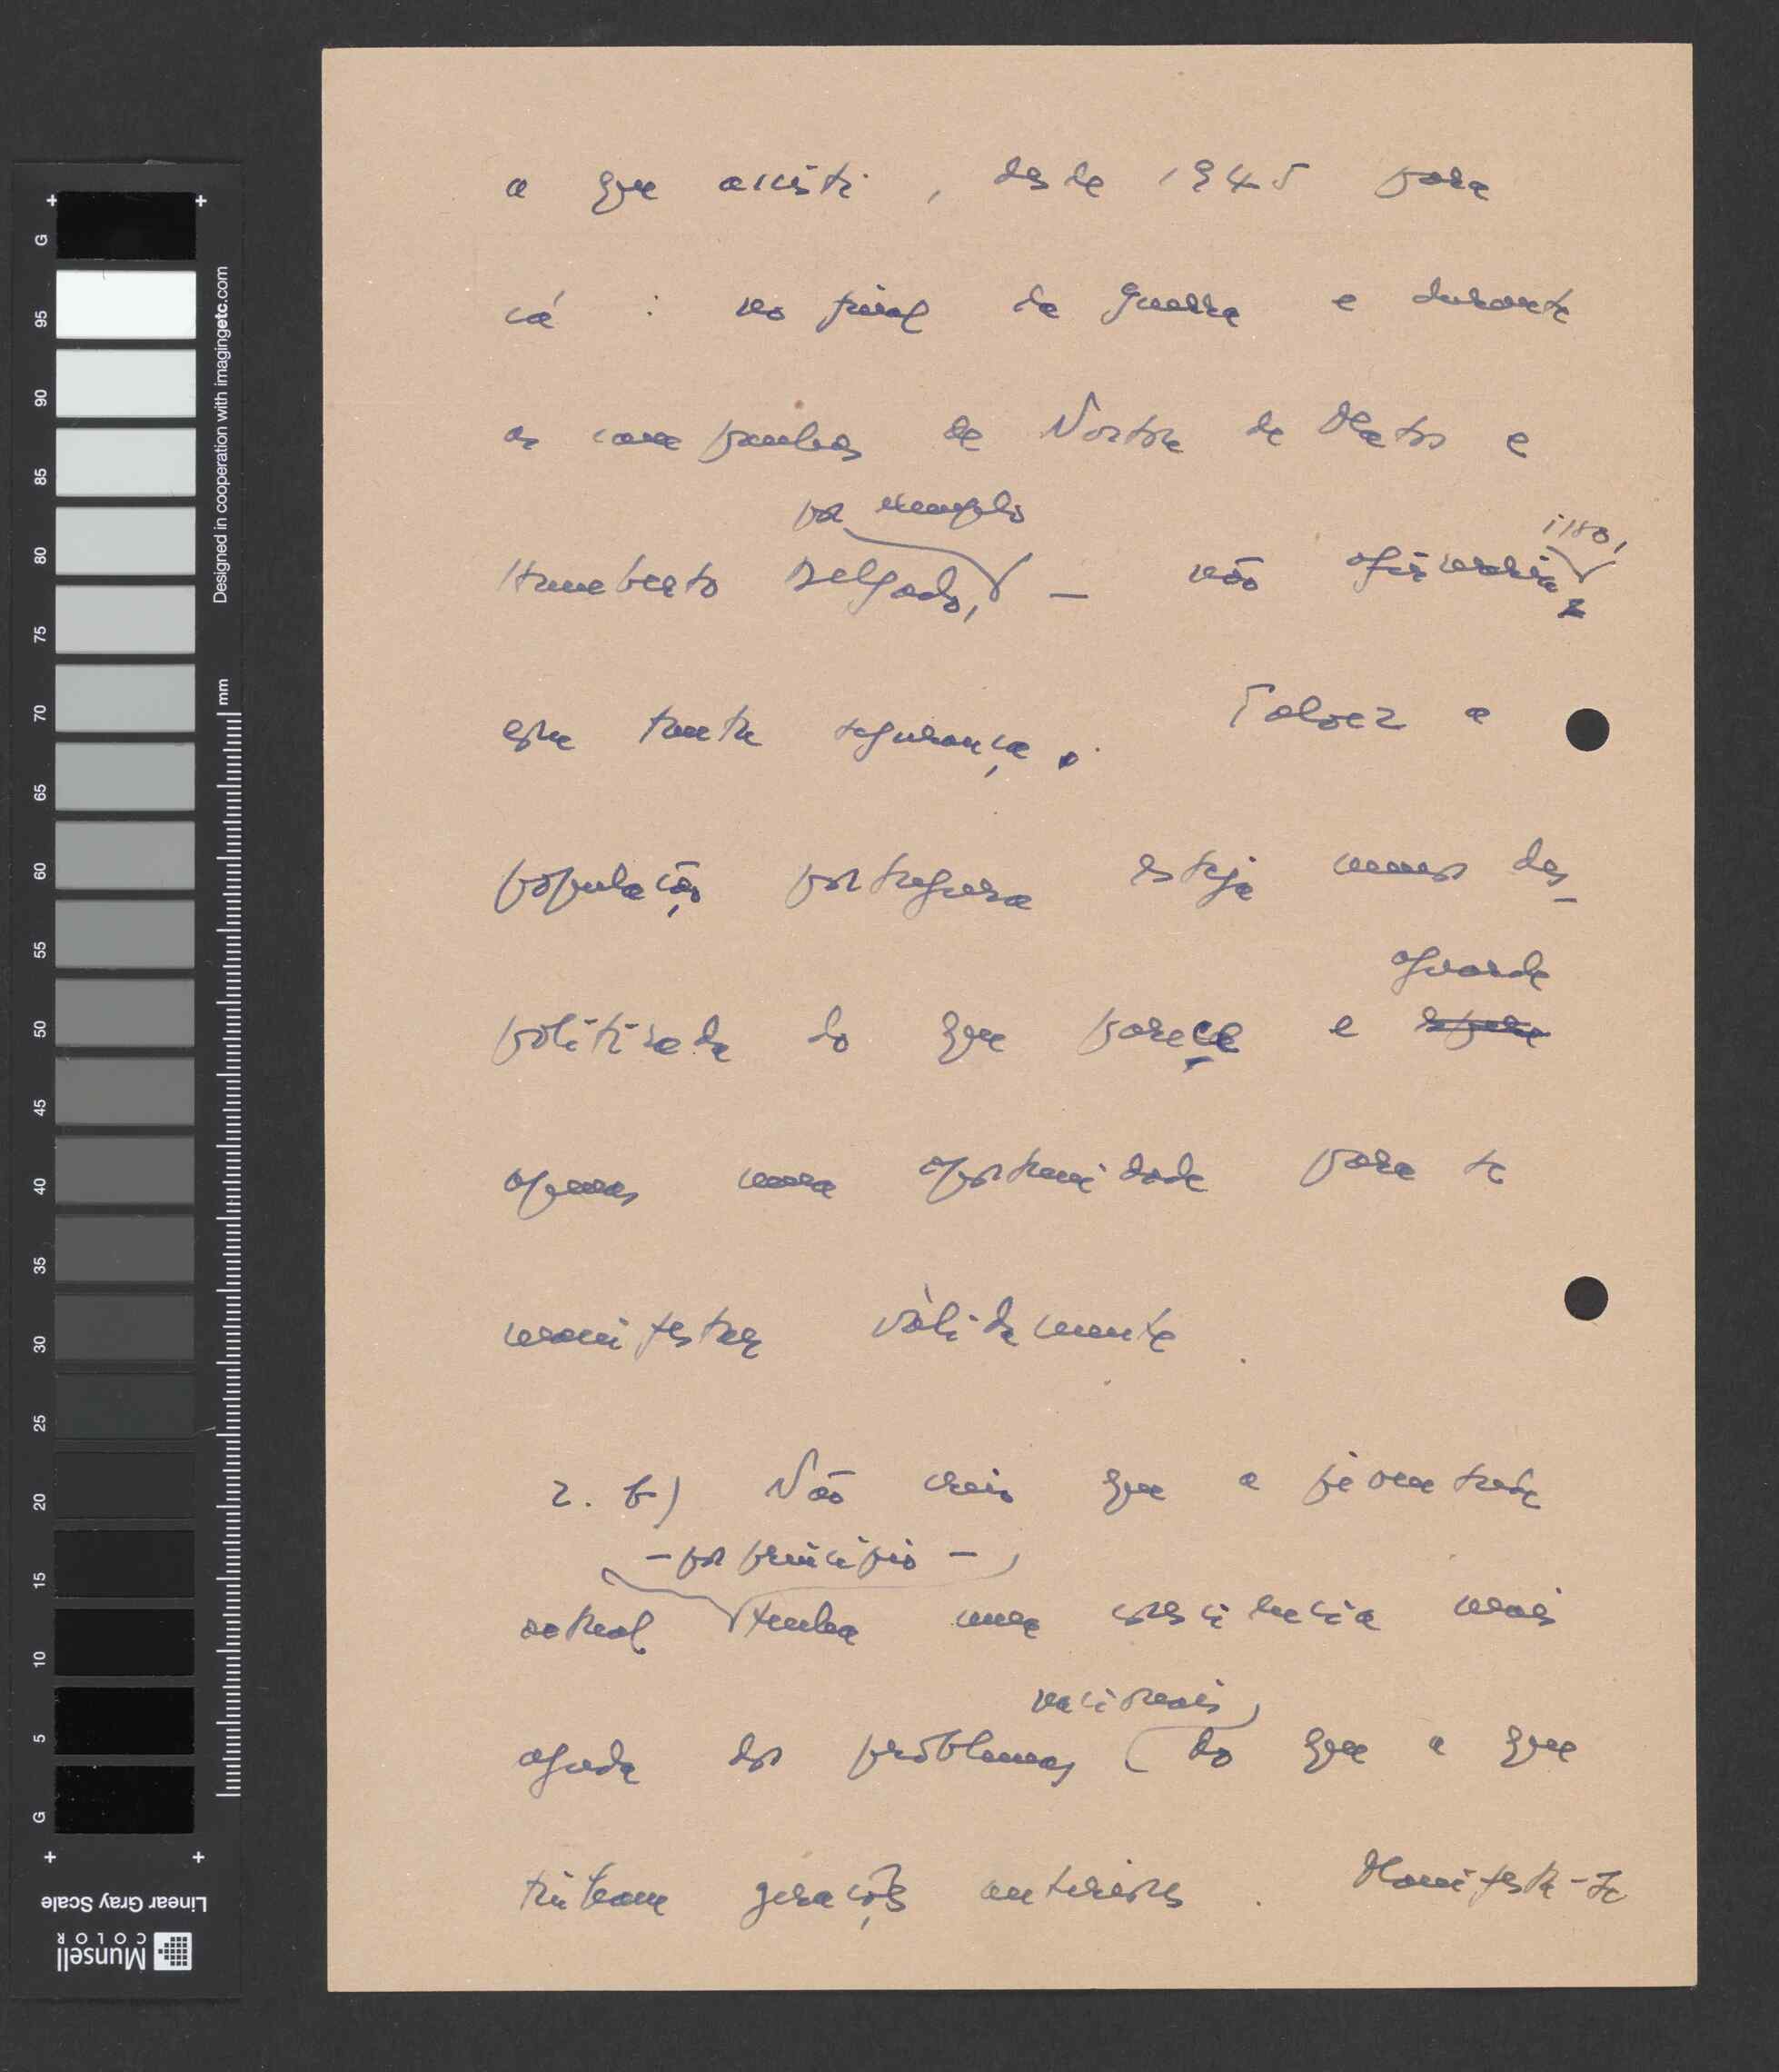 a que assisti, desde 1945 para
cá: no final da guerra e durante
as campanhas de Norton de Matos e
por exemplo
Humberto Delgado, — não afirmaria
isso,
com tanta segurança. Talvez a
população portuguesa esteja menos des-
aguarde
politizada do que parece e espera
apenas uma oportunidade para se
manifestar vàlidamente.
2. b) Não creio que a juventude
— por princípio —
actual tenha uma consciência mais
nacionais
aguda dos problemas do que a que
tinham gerações anteriores. Manifesta-se
G
95
90
85
80
75
70
65
60
55
50
45
40
35
30
25
20
15
10
5
G
Designed in cooperation with imagingetc.com
mm
Linear Gray Scale
Munsell
COLOR